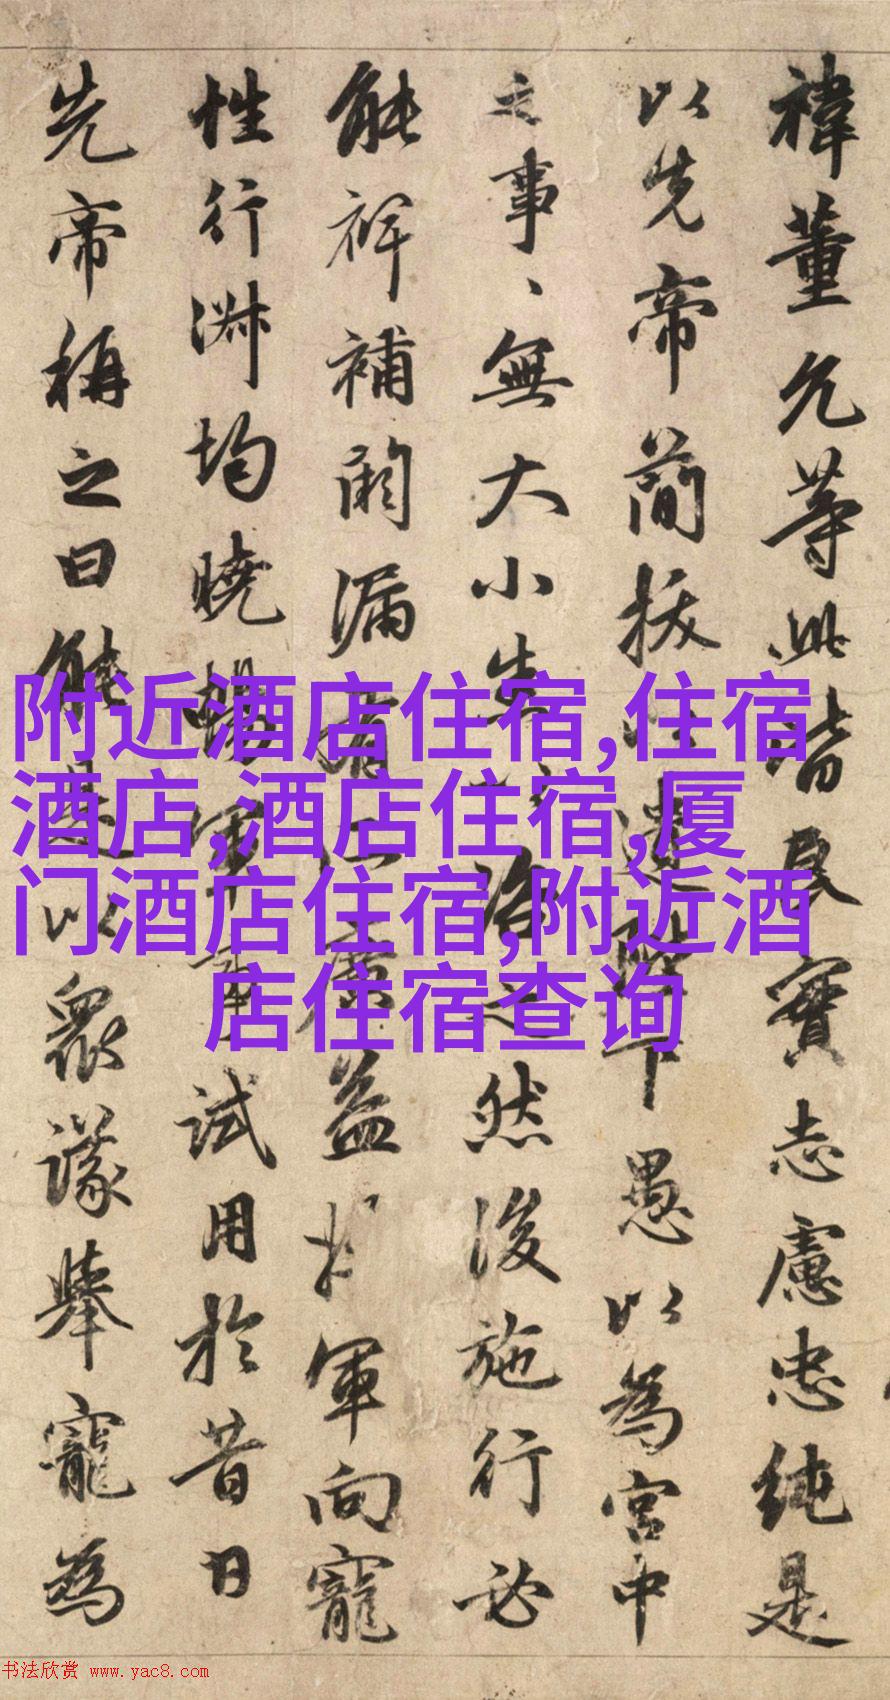 禕董允等此皆良實志慮忠純是
以先帝簡拔以遺陛下愚以為宮中
之事、無大小悉以咨之然後施行必
能裨補闕漏有所廣益將軍向寵
性行淑均曉暢軍事試用於昔日
先帝稱之曰能是以衆議舉寵為
附近酒店住宿,住宿
酒店,酒店住宿,厦
门酒店住宿,附近酒
店住宿查询
书法欣赏 www.yac8.com